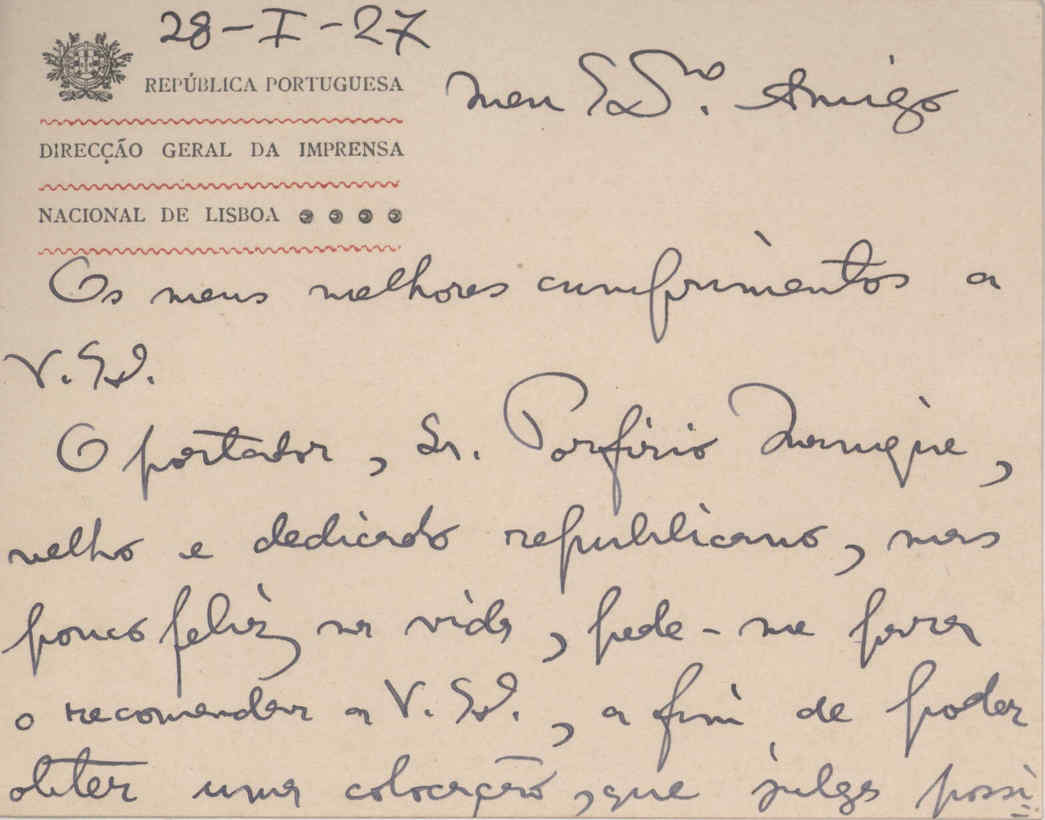 28-I-27
REPÚBLICA PORTUGUESA
Meu Ex.mo Amigo
DIRECÇÃO GERAL DA IMPRENSA
NACIONAL DE LISBOA
Os meus melhores cumprimentos a
V. Ex.
O portador, Sr. Porfirio
velho e dedicado republicano, mas
pouco feliz na vida, pede-me para
o recomendar a V. Ex., a fim de poder
obter uma colocação, que julga possi